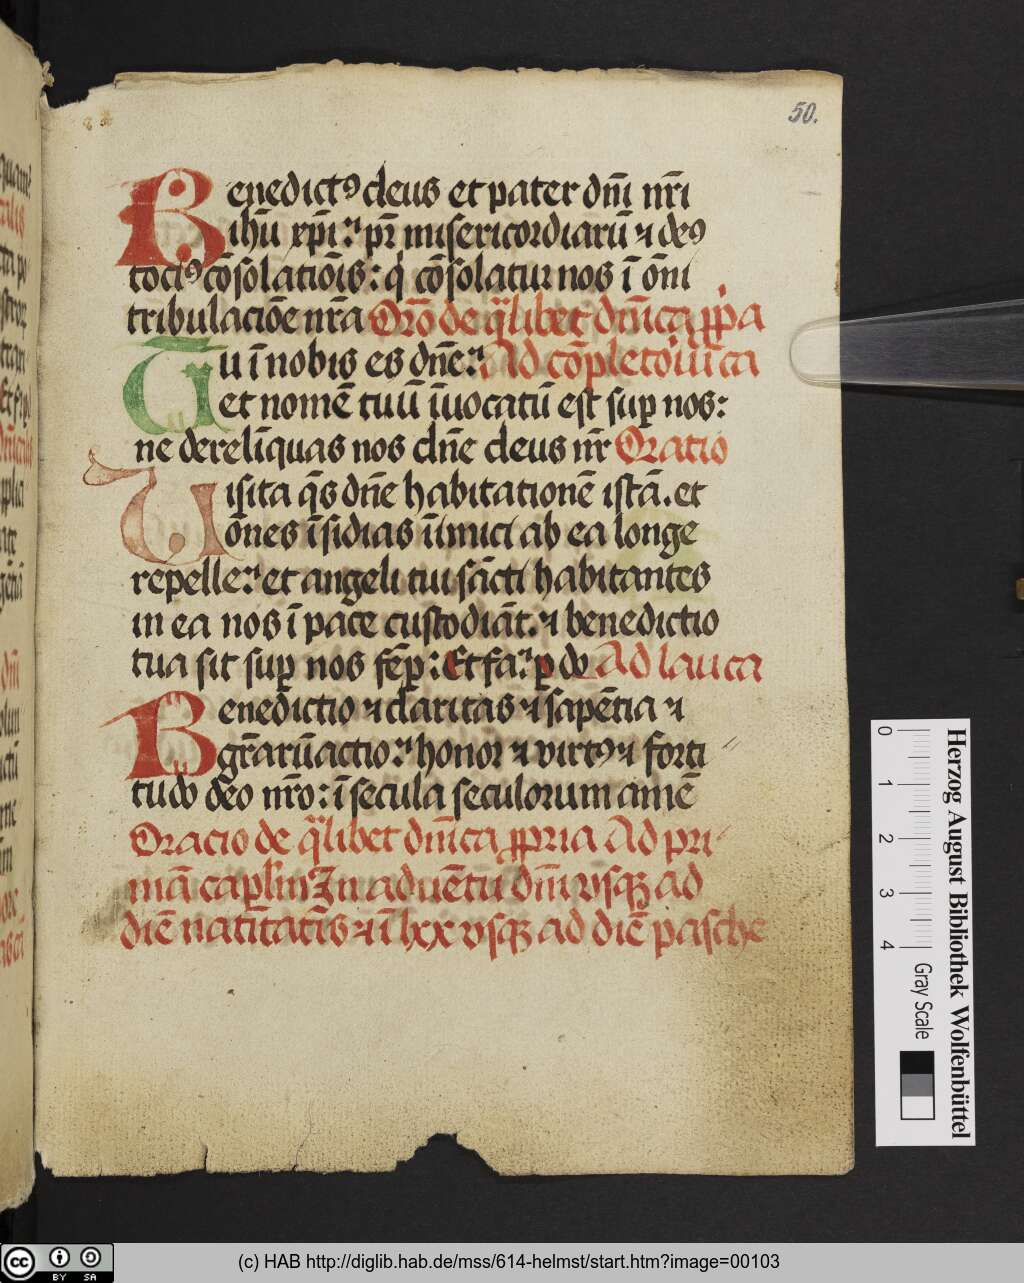 50.
Benedictꝰ deus et pater dn̄i nr̄i
ihū xp̄i: pr̄ misericordiarū ⁊ deꝰ
tociꝰ cōsolatiōis: q̇ cōsolatur nos ī ōni
tribulaciōe nr̄a Orō de q̄libet dnīca ꝓp̄a
Tu ī nobis es dn̄e: Ad cōpletoiū ca
et nomē tuū īuocatū est suꝑ nos:
ne derelīquas nos dn̄e deus nr̄ Oratio
Uisita q̄s dn̄e habitationē istā. et
ōnes īsidias inīmici ab ea longe
repelle: et angeli tui sācti habitantes
in ea nos ī pāce custodiāt. ⁊ benedictio
tua sit suꝑ nos sēꝑ: Et fa: ꝑ do Ad lau ca
Benedictio ⁊ claritas ⁊ sapētia ⁊
gr̄arū actio: honor ⁊ virtꝰ ⁊ forti
tudo deo nr̄o: ī secula seculorum amē
Oracio de q̄libet dnīca ꝓpria Ad pri
mā caplm In aduētu dn̄i vsqꝫ ad
diē natītatīs ⁊ ī lxx vsqꝫ ad diē pasche
0 1 2 3 4
Gray Scale
Herzog August Bibliothek Wolfenbüttel
cc BY SA
(c) HAB http://diglib.hab.de/mss/614-helmst/start.htm?image=00103